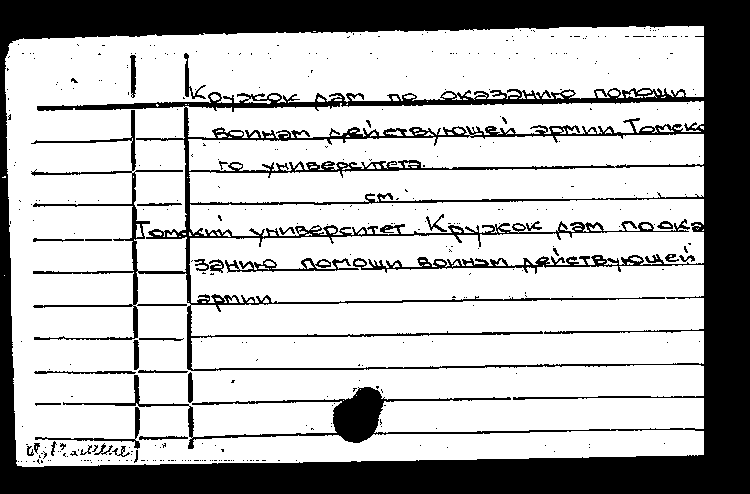 Кружок дам по оказанию помощи
воинам действующей армии, Томско
го университета.
см.
Томский университет. Кружок дам по ока
занию помощи воинам действующей
армии.